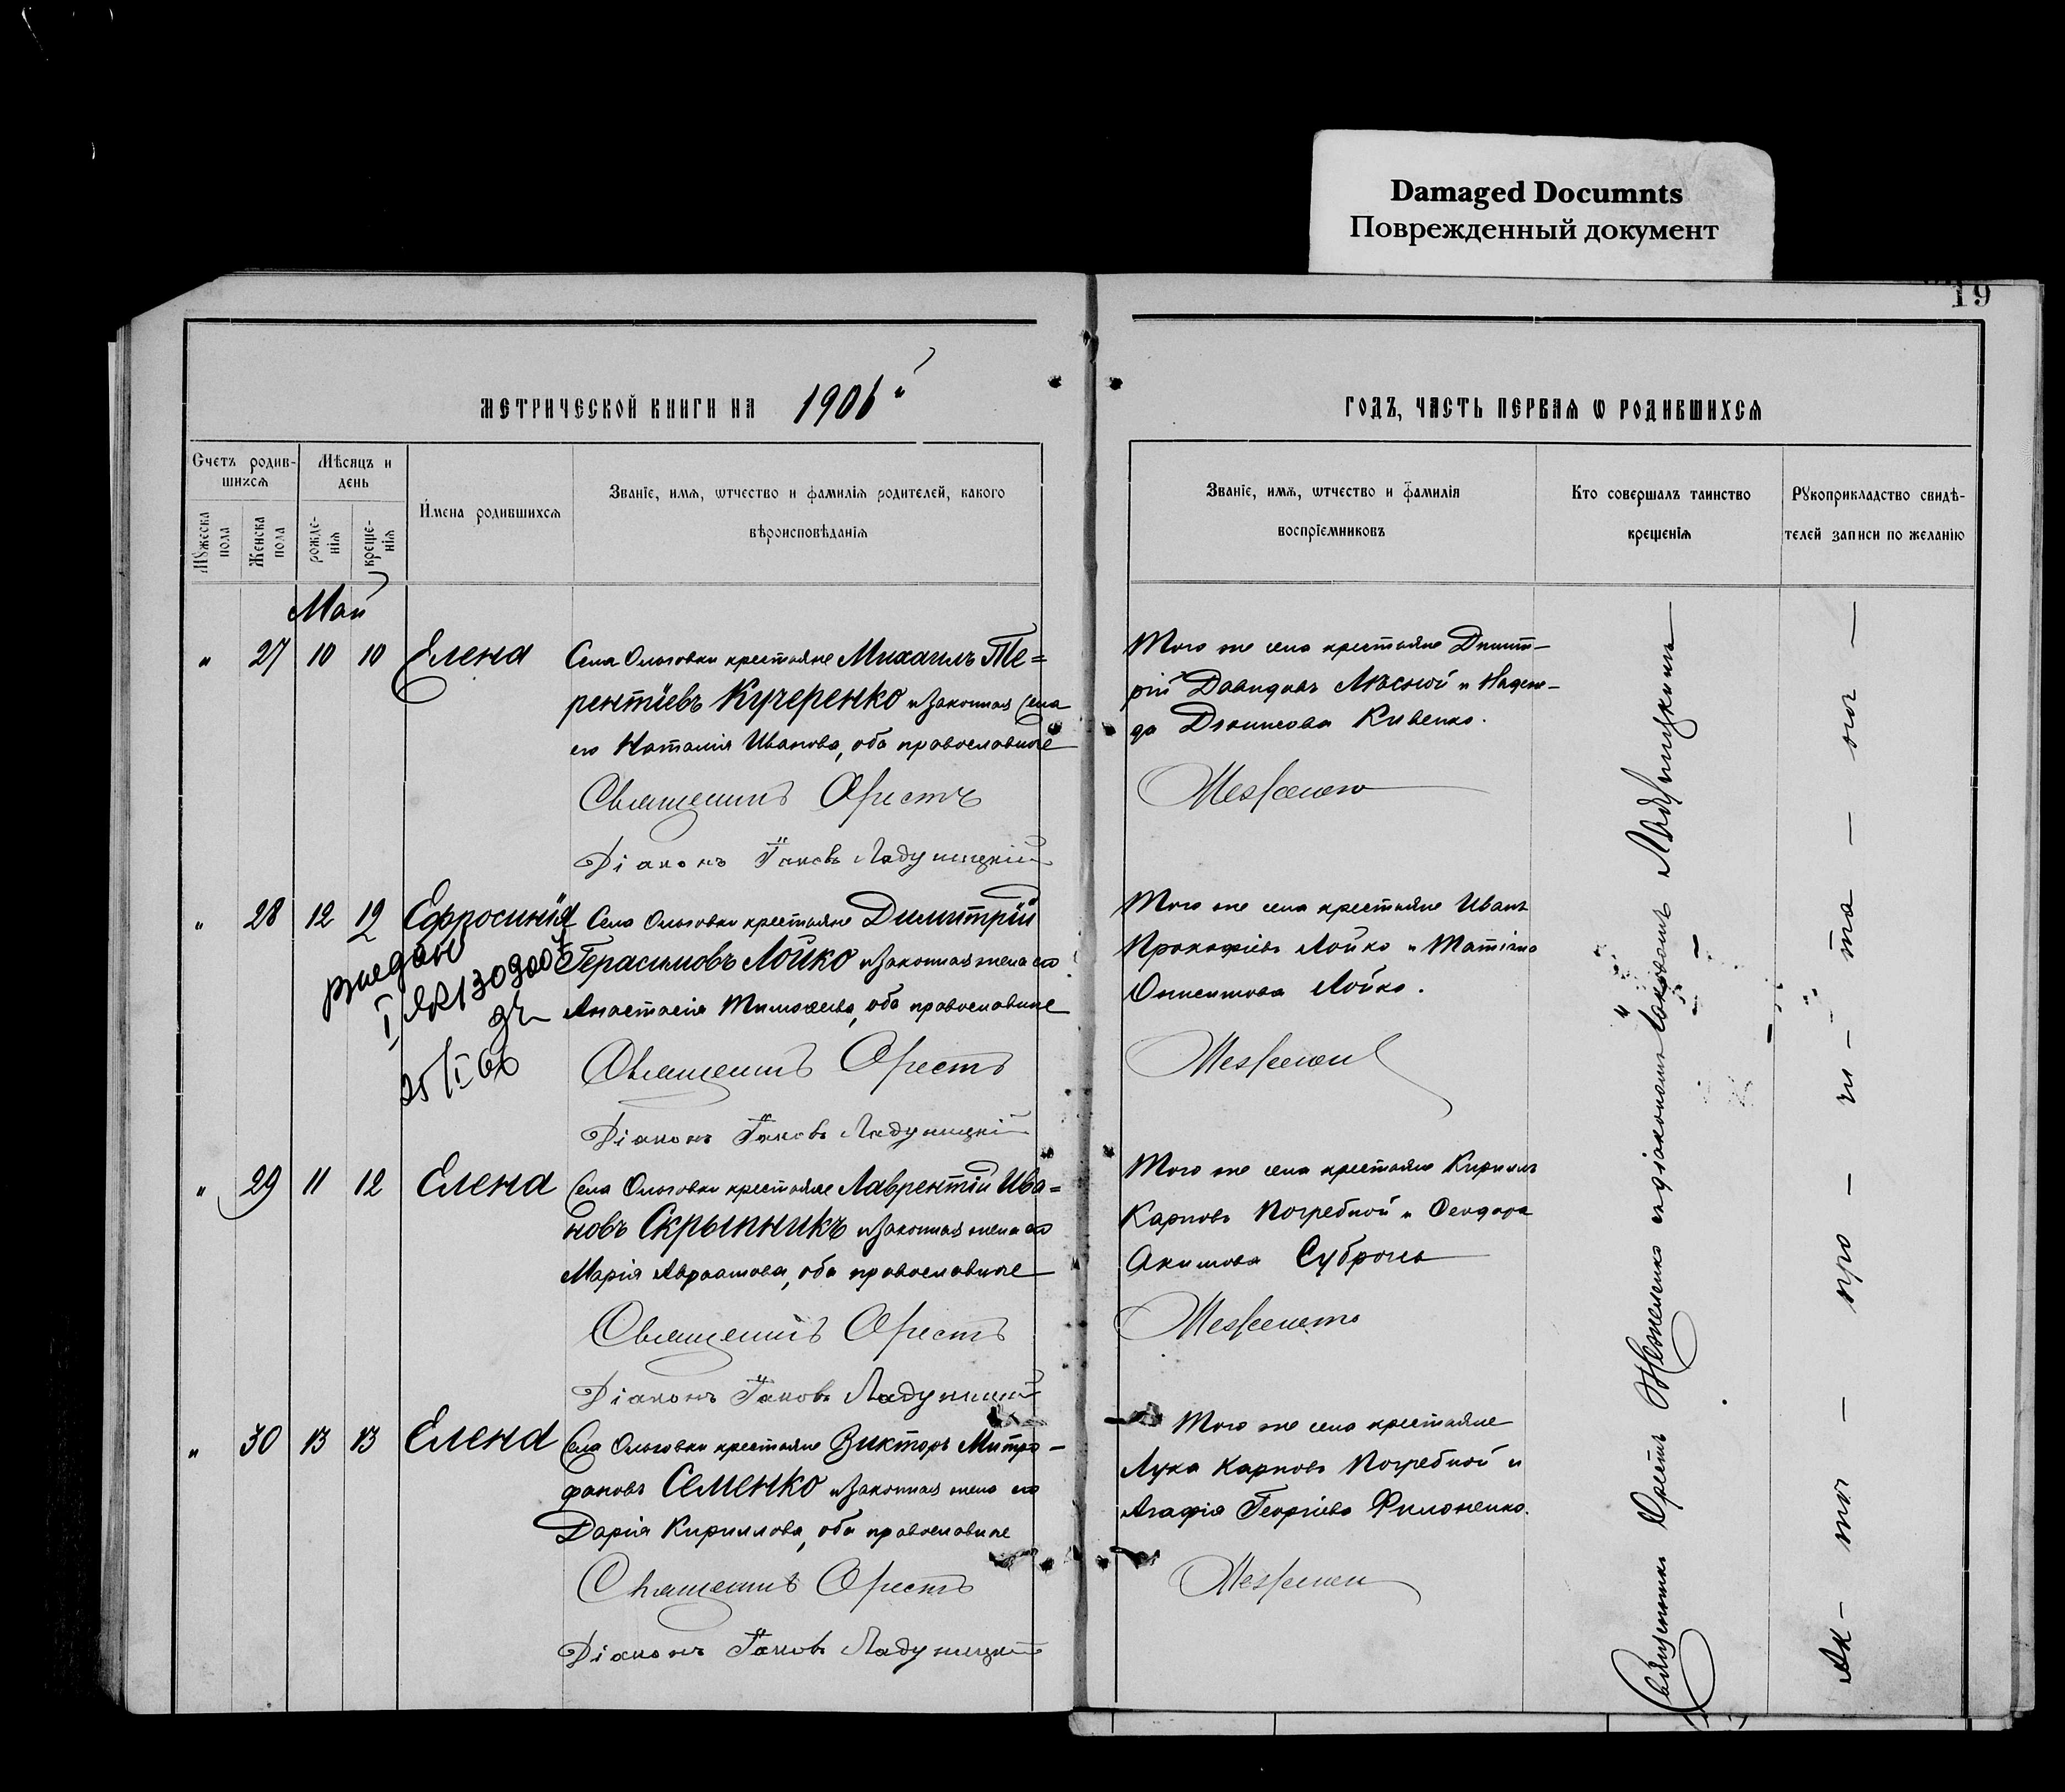 Damaged Documnts
Поврежденный документ
19
МЕТРИЧЕСКОЙ КНИГИ НА 1906й
ГОДЪ, ЧАСТЬ ПЕРВАѦ Ѡ РОДИВШИХСѦ
Счетъ родив-
шихсѧ
Мѣсяцъ и
день
Мужеска
пола
Женска
пола
рожде-
нія
креще-
нія
Имена родившихсѧ
Званіе, имѧ, ѿчество и фамиліѧ родителей, какого
вѣроисповѣданіѧ
Званіе, имѧ, ѿчество и фамиліѧ
воспріемниковъ
Кто совершалъ таинство
крещеніѧ
Рукоприкладство свидѣ-
телей записи по желанію
Май
" 27 10 10 Елена
Села Ольговки крестьяне Михаилъ Те=
рентіевъ Кучеренко и законная жена
его Наталія Иванова, оба православные
Священникъ Орестъ
Діаконъ Іаковъ Ладуницкій
Того же села крестьяне Димит-
рій Давидовъ Лѣсной и Надеж-
да Діонисова Кивенко.
" 28 12 12 Ефросинія
выдан
25/I 66
Села Ольговки крестьяне Димитрій
Герасимовъ Лойко и законная жена его
Анастасія Тимоѳеева, оба православные
Священникъ Орестъ
Діаконъ Іаковъ Ладуницкій
Того же села крестьяне Иванъ
Прокофіевъ Лойко и
Лойко.
" 29 11 12 Елена
Села Ольговки крестьяне Лаврентій Ива=
новъ Скрыпникъ и законная жена его
Марія Авраамова, оба православные
Священникъ Орестъ
Діаконъ Іаковъ Ладуницкій
Того же села крестьяне Кириллъ
Карповъ Погребной и Ѳеодора
Акимова
" 30 13 13 Елена
Села Ольговки крестьяне Викторъ Митро-
фановъ Семенко и законная жена его
Дарія Кириллова, оба православные
Священникъ Орестъ
Діаконъ Іаковъ Ладуницкій
Того же села крестьяне
Лука Карповъ Погребной и
Агафія Георгіева Филоненко.
Священникъ Орестъ съ діакономъ Іаковомъ Ладуницкимъ